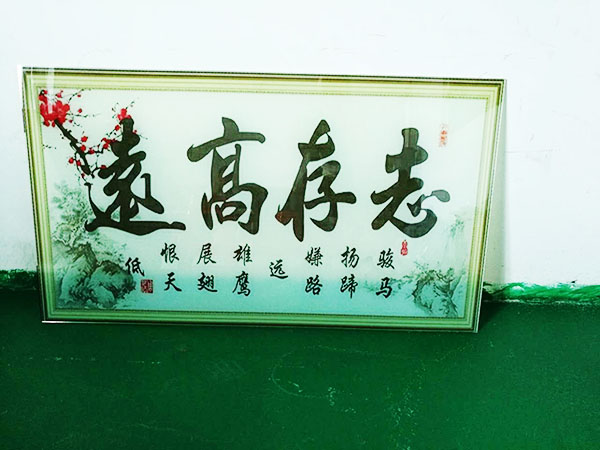 志存高遠
骏马扬蹄嫌路远
雄鹰展翅恨天低